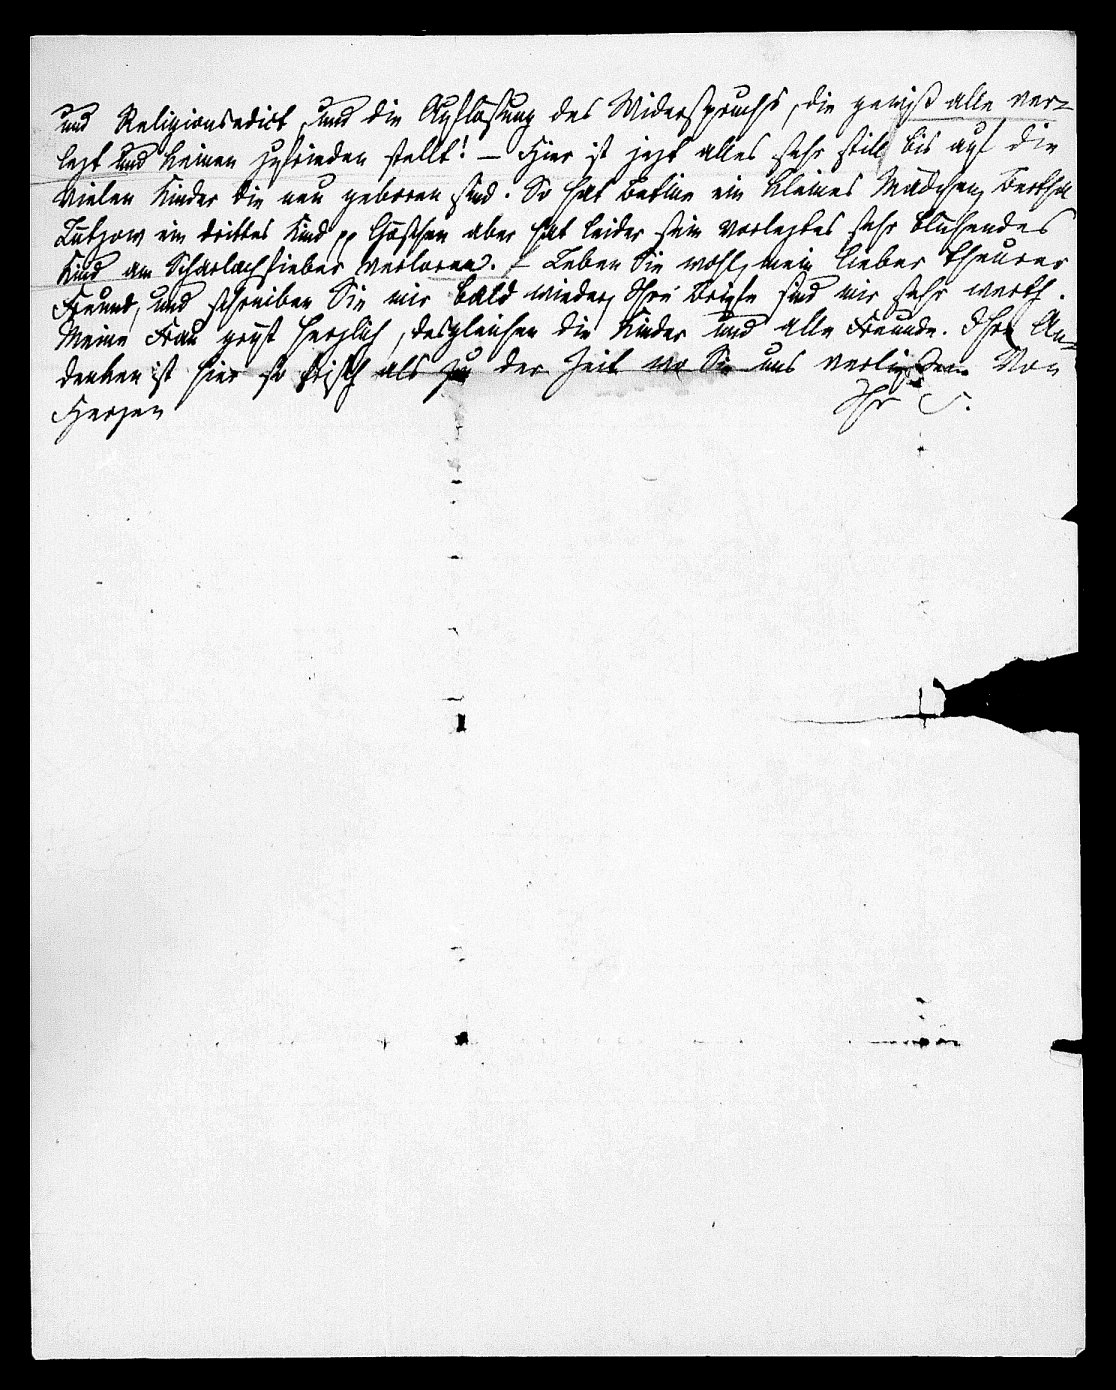 und Religionsedict, und die Auflösung des Widerspruchs, die gewiß alle ver-
lezt und keinen zufrieden stellt! – Hier ist jezt alles sehr still bis auf die
vielen Kinder die neu geboren sind. So hat Betine ein kleines Mädchen, Bertha
Lützow ein drittes Kind pp Göschen aber hat leider sein vorleztes sehr blühendes
Kind am Scharlachfieber verloren. – Leben Sie wohl, mein lieber theurer
Freund, und schreiben Sie mir bald wieder, Ihre Briefe sind mir sehr werth.
Meine Frau grüst herzlich, desgleichen die Kinder und alle Freunde. Ihr An-
denken ist hier so frisch als zu der Zeit wo Sie uns verließen. Von
Herzen Ihr S.